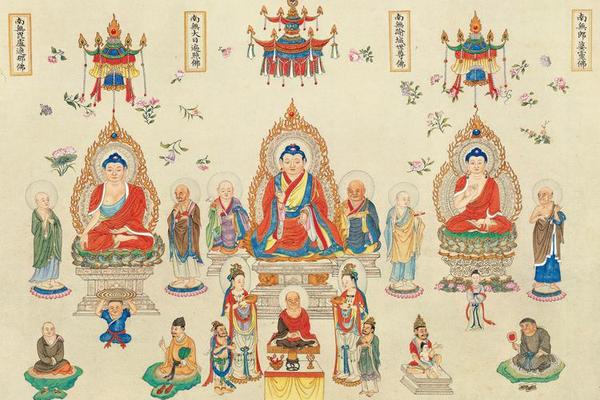 南無郎婆靈佛
南無踰城世尊佛
南無大日遍照佛
南無毘盧遮那佛